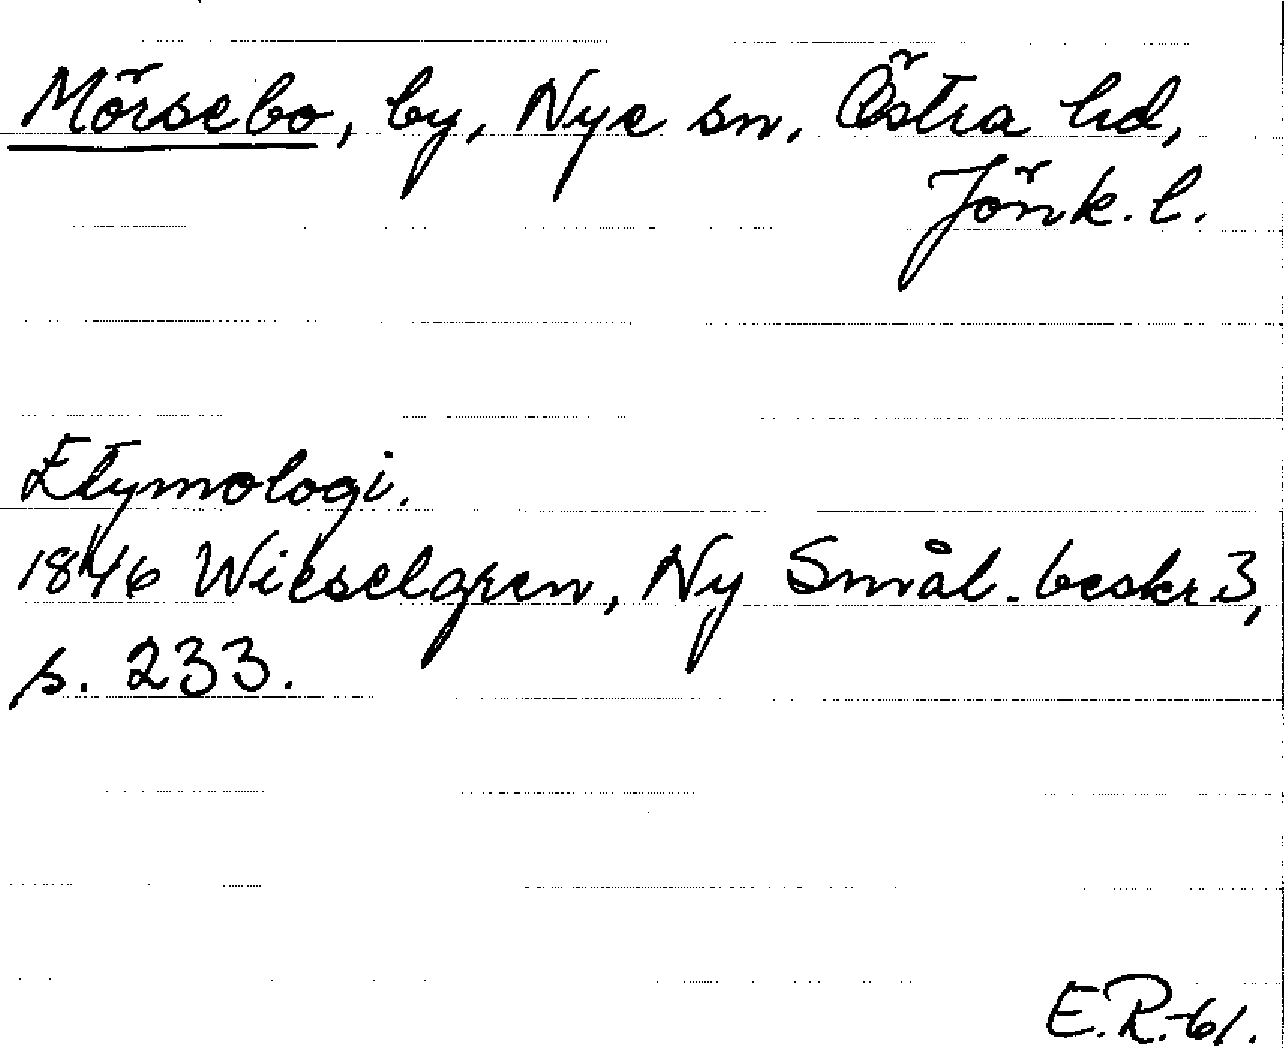 Mörsebo, by, Nye sn, Östra hd,
Jönk. l.
Etymologi.
1846 Wieselgren, Ny Smål. beskr 3,
s. 233.
E.R.-61.